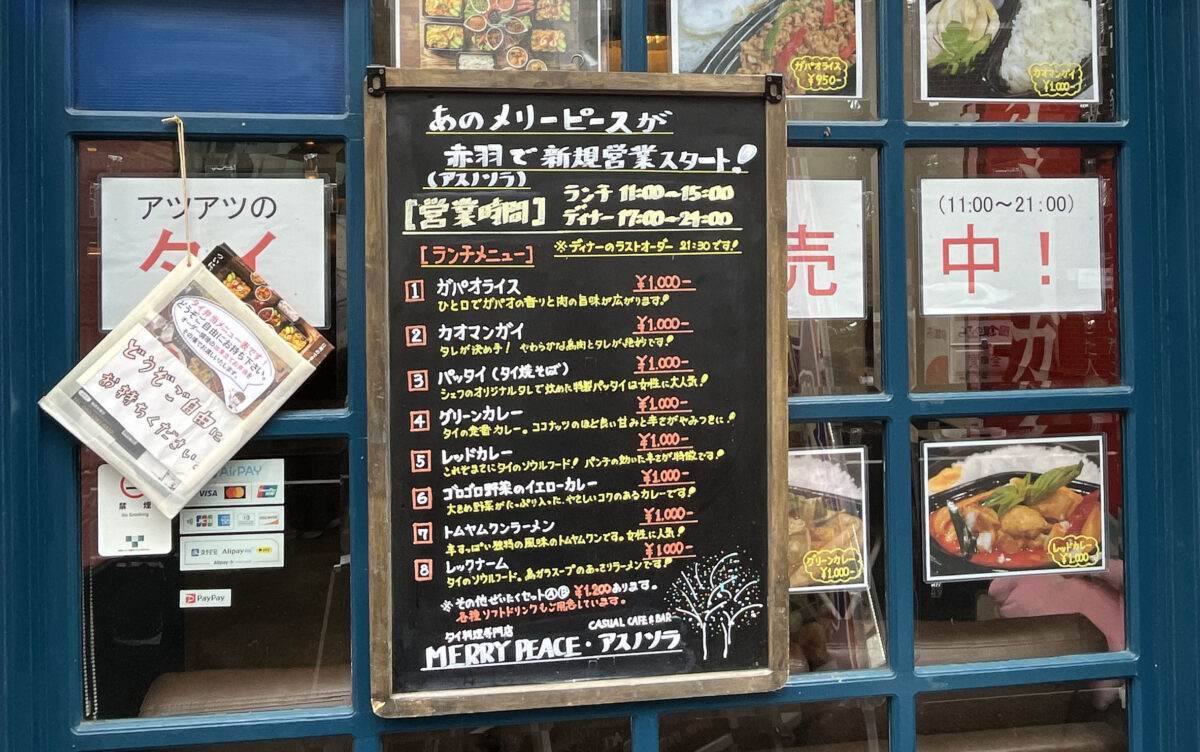 ガパオライス
¥950-
カオマンガイ
¥1,000-
あのメリーピースが
赤羽で新規営業スタート!
(アスノソラ)
[営業時間]
ランチ 11:00〜15:00
ディナー 17:00〜24:00
※ディナーのラストオーダー 21:30です!
[ランチメニュー]
1 ガパオライス ¥1.000-
ひと口でガパオの香りと肉の旨味が広がります!
2 カオマンガイ ¥1.000-
タレが決め手! やわらかな鳥肉とタレが絶妙です!
3 パッタイ(タイ焼そば) ¥1.000-
シェフのオリジナルタレで炒めた特製パッタイは女性に大人気!
4 グリーンカレー ¥1.000-
タイの定番カレー。ココナッツのほど良い甘みと辛さがやみつきに!
5 レッドカレー ¥1.000-
これぞまさにタイのソウルフード! パンチの効いた辛さが特徴です!
6 ゴロゴロ野菜のイエローカレー ¥1.000-
大きめ野菜がたっぷり入った、やさしいコクのあるカレーです!
7 トムヤムクンラーメン ¥1.000-
辛すっぱい独特の風味のトムヤムクンです。女性に人気!
8 レックナーム ¥1.000-
タイのソウルフード。鳥ガラスープのあっさりラーメンです!
※その他ぜいたくセットⒶⒷ ¥1.200あります。
各種ソフトドリンクもご用意しています。
タイ料理専門店
CASUAL CAFE & BAR
MERRY PEACE・アスノソラ
アツアツの
タイ
売
(11:00〜21:00)
中!
タイ弁当メニュー表です!
どうぞご自由にお持ち下さい。
どうぞご自由に
お持ちください。
禁煙
No Smoking
AirPAY
VISA
支付宝 Alipay
PayPay
グリーンカレー
¥1,000-
レッドカレー
¥1,000-